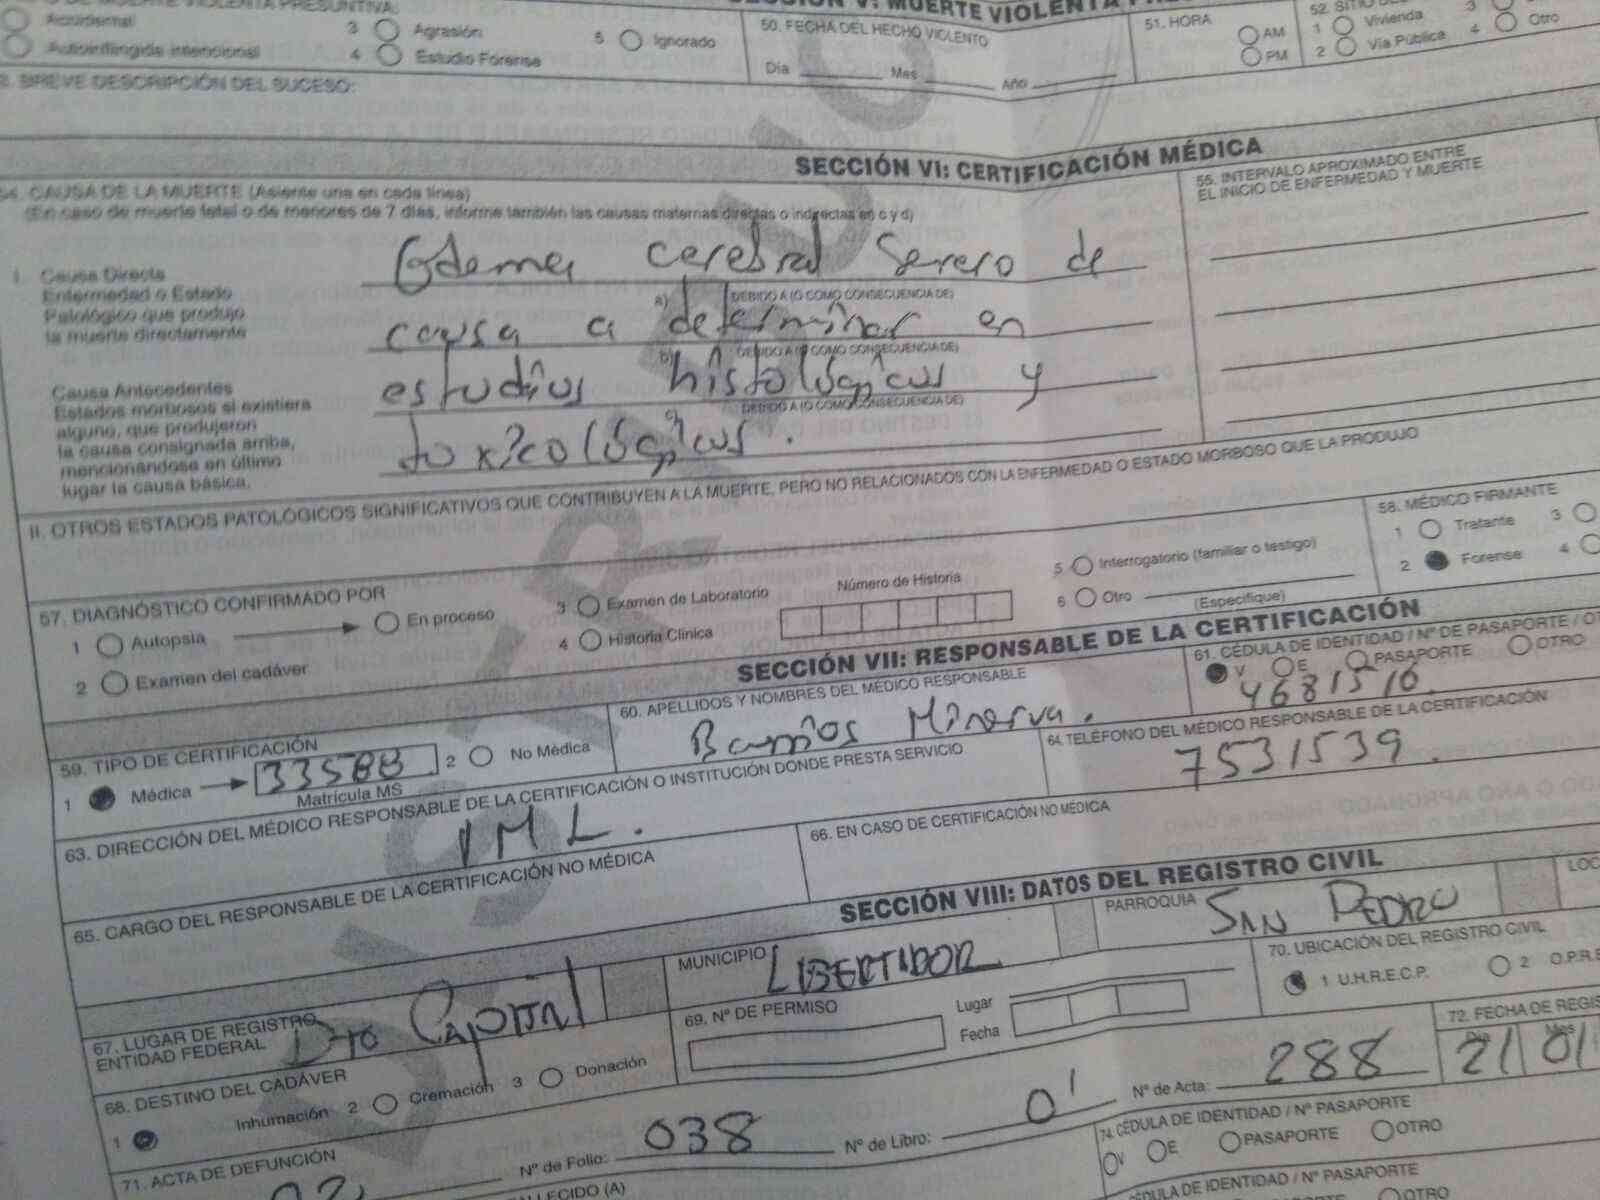 MUERTE VIOLENTA PRESUNTIVA:
SECCIÓN V: MUERTE VIOLENTA
Accidental
Autoinflingida intencional
3 Agresión
4 Estudio Forense
5 Ignorado
50. FECHA DEL HECHO VIOLENTO
Día Mes Año
51. HORA
AM
PM
52. SITIO DEL
1 Vivienda 3
2 Vía Pública 4 Otro
BREVE DESCRIPCIÓN DEL SUCESO:
SECCIÓN VI: CERTIFICACIÓN MÉDICA
54. CAUSA DE LA MUERTE (Asiente una en cada línea)
(En caso de muerte fetal o de menores de 7 días, informe también las causas maternas directas o indirectas en c y d)
55. INTERVALO APROXIMADO ENTRE
EL INICIO DE ENFERMEDAD Y MUERTE
I. Causa Directa
Enfermedad o Estado
Patológico que produjo
la muerte directamente
Edema cerebral Severo de
a) DEBIDO A (O COMO CONSECUENCIA DE)
causa a determinar en
b) DEBIDO A (O COMO CONSECUENCIA DE)
Causa Antecedentes
Estados morbosos si existiera
alguno, que produjeron
la causa consignada arriba,
mencionándose en último
lugar la causa básica.
estudios histológicos y
c) DEBIDO A (O COMO CONSECUENCIA DE)
toxicológicos.
II. OTROS ESTADOS PATOLÓGICOS SIGNIFICATIVOS QUE CONTRIBUYEN A LA MUERTE, PERO NO RELACIONADOS CON LA ENFERMEDAD O ESTADO MORBOSO QUE LA PRODUJO
57. DIAGNÓSTICO CONFIRMADO POR
1 Autopsia En proceso
2 Examen del cadáver
3 Examen de Laboratorio
4 Historia Clínica
Número de Historia
5 Interrogatorio (familiar o testigo)
6 Otro
(Especifique)
58. MÉDICO FIRMANTE
1 Tratante 3
2 Forense 4
SECCIÓN VII: RESPONSABLE DE LA CERTIFICACIÓN
59. TIPO DE CERTIFICACIÓN
1 Médica 33588 2 No Médica
Matrícula MS
60. APELLIDOS Y NOMBRES DEL MÉDICO RESPONSABLE
Barrios Minerva.
61. CÉDULA DE IDENTIDAD / Nº DE PASAPORTE / OT
V E PASAPORTE OTRO
4681510.
63. DIRECCIÓN DEL MÉDICO RESPONSABLE DE LA CERTIFICACIÓN O INSTITUCIÓN DONDE PRESTA SERVICIO
IML.
64. TELÉFONO DEL MÉDICO RESPONSABLE DE LA CERTIFICACIÓN
7531539.
65. CARGO DEL RESPONSABLE DE LA CERTIFICACIÓN NO MÉDICA
66. EN CASO DE CERTIFICACIÓN NO MÉDICA
SECCIÓN VIII: DATOS DEL REGISTRO CIVIL
67. LUGAR DE REGISTRO
ENTIDAD FEDERAL
Dto Capital
MUNICIPIO LIBERTADOR
PARROQUIA SAN PEDRO
LOC
68. DESTINO DEL CADÁVER
1 Inhumación 2 Cremación 3 Donación
69. Nº DE PERMISO
Lugar
Fecha
70. UBICACIÓN DEL REGISTRO CIVIL
1 U.H.R.E.C.P. 2 O.P.R.E
71. ACTA DE DEFUNCIÓN
Nº de Folio: 038 Nº de Libro: 01 Nº de Acta: 288
72. FECHA DE REGIS
Día Mes
21 01
74. CÉDULA DE IDENTIDAD / Nº PASAPORTE
V E PASAPORTE OTRO
CÉDULA DE IDENTIDAD / Nº PASAPORTE
PASAPORTE OTRO